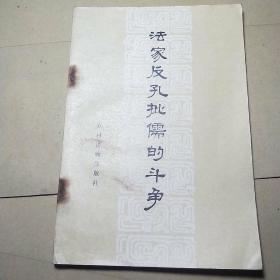 法家反孔批儒的斗争